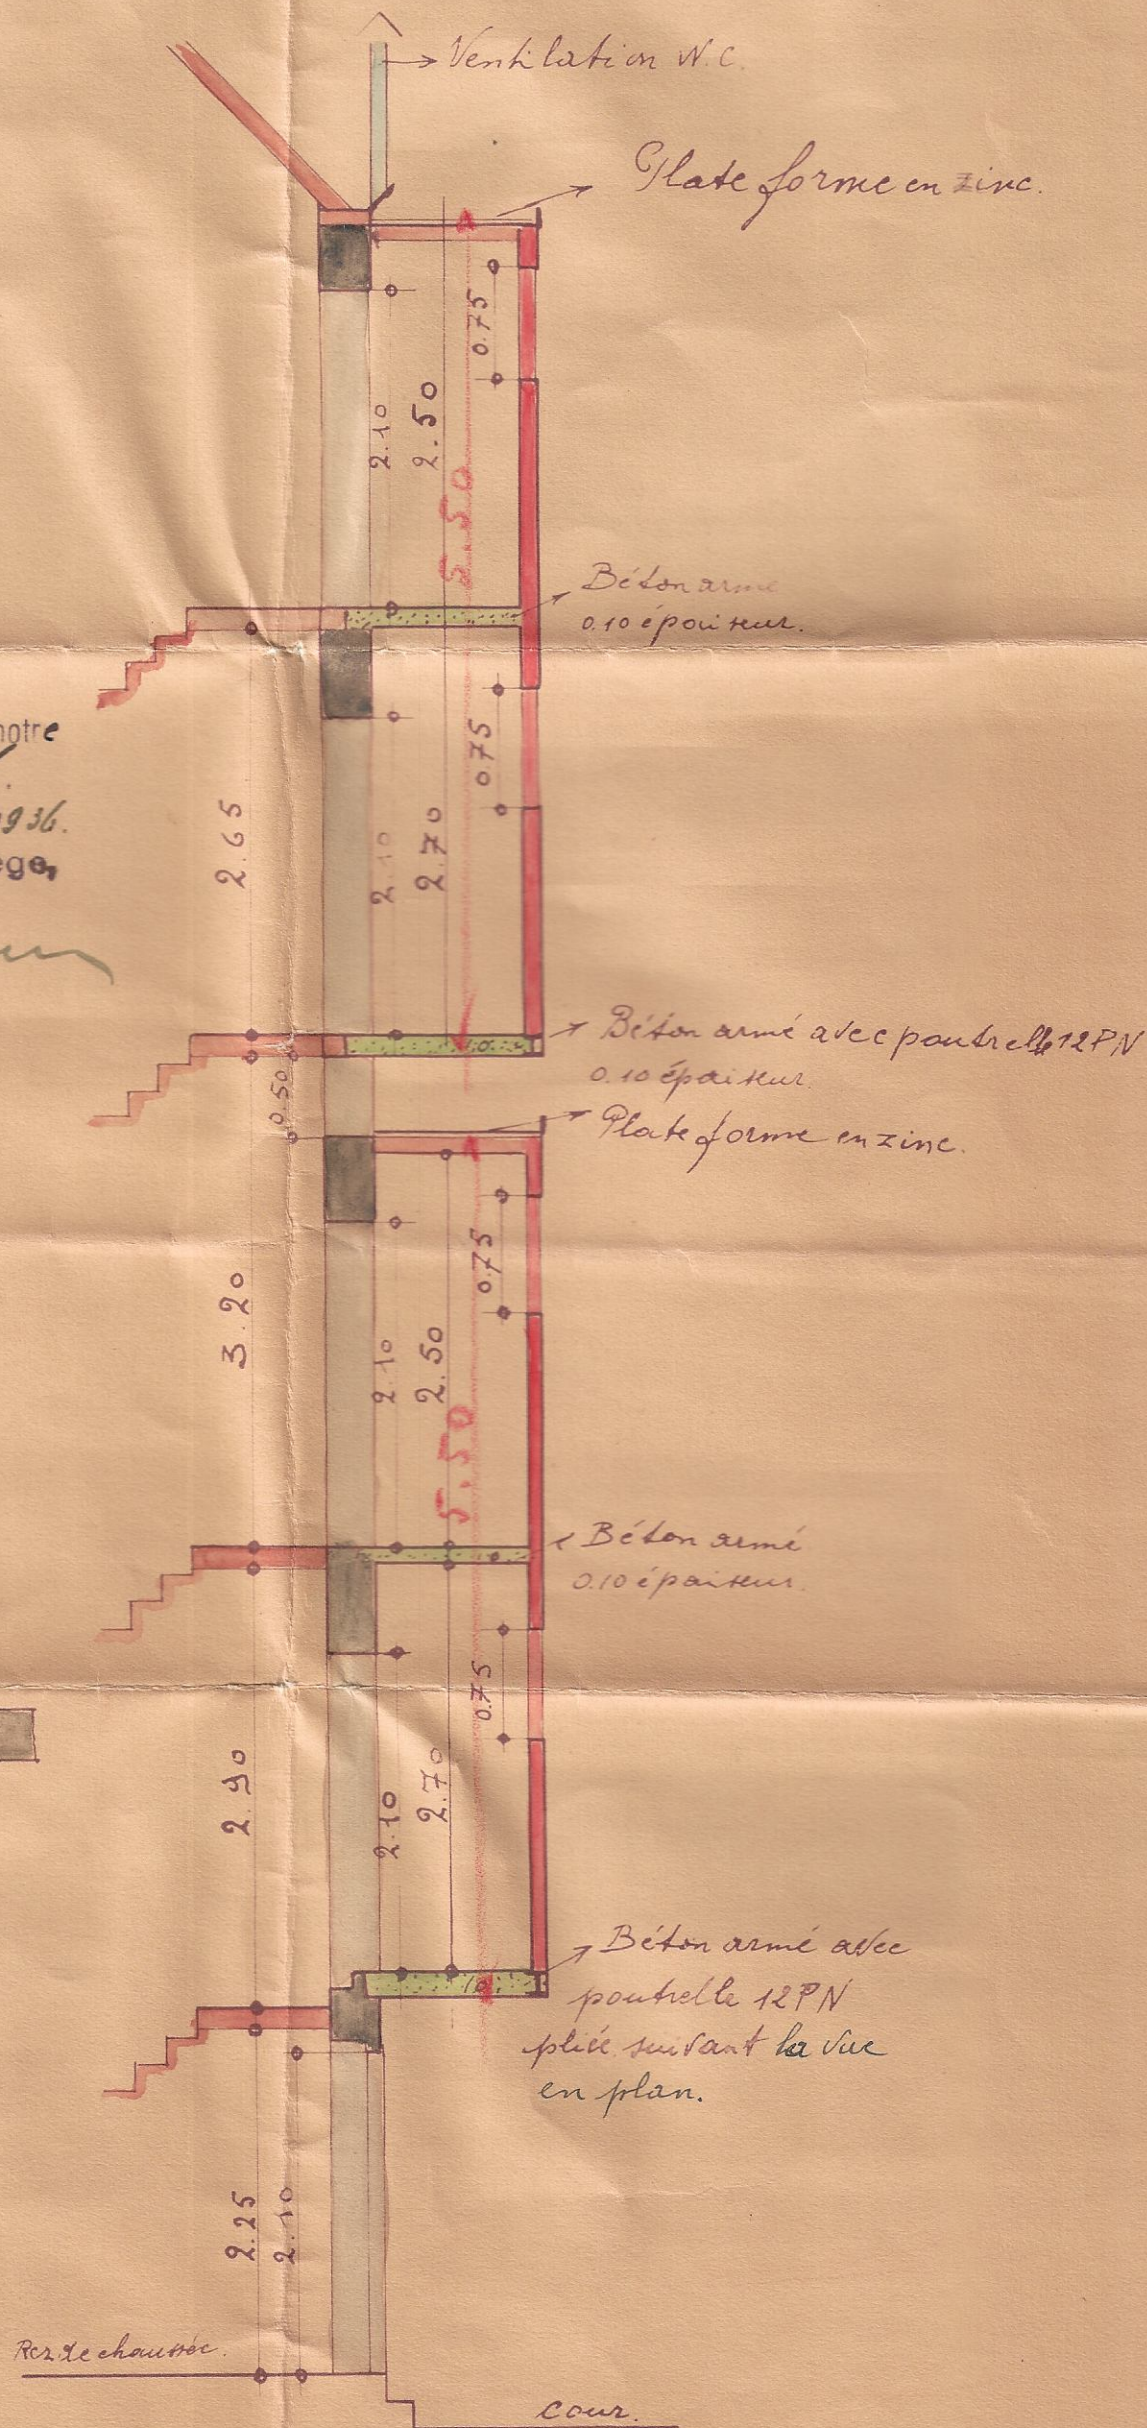 Ventilation W.C.
Plate forme en zinc.
0.75
2.10
2.50
5.50
Béton armé
0.10 épaisseur.
notre
936.
2.65
2.10
2.70
0.75
Béton armé avec poutrelle 12PN
0.10 épaisseur.
0.50
Plate forme en zinc.
0.75
3.20
2.10
2.50
5.50
Béton armé
0.10 épaisseur.
0.75
2.90
2.10
2.70
10
Béton armé avec
poutrelle 12PN
pliée suivant la vue
en plan.
2.25
2.10
Rez de chaussée.
cour.